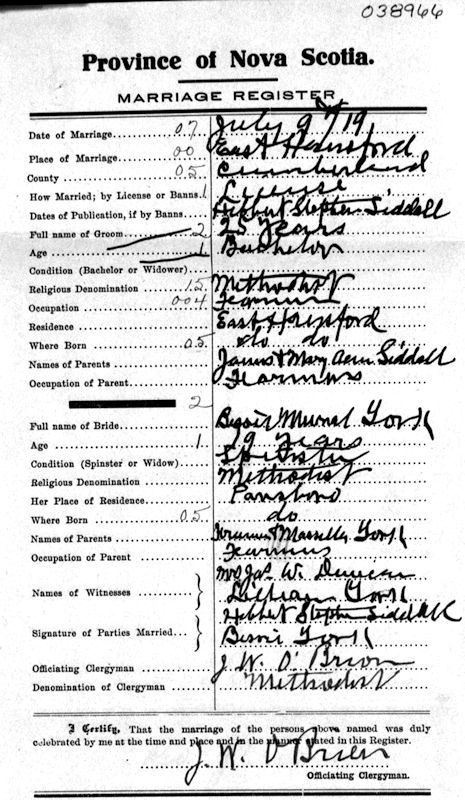 038966
Province of Nova Scotia.
MARRIAGE REGISTER
Date of Marriage 07 July 9th/19
Place of Marriage 00 East Hansford
County 05 Cumberland
How Married; by License or Banns 1 License
Dates of Publication, if by Banns
Full name of Groom 2 Stephen Siddall
Age 1 25 Years
Condition (Bachelor or Widower) Bachelor
Religious Denomination 15 Methodist
Occupation 004 Farmer
Residence East Hansford
Where Born 05 do do
Names of Parents James & Mary Ann Siddall
Occupation of Parent Farmers
2
Full name of Bride Bessie York
Age 1 19 Years
Condition (Spinster or Widow) Spinster
Religious Denomination Methodist
Her Place of Residence Parrsboro
Where Born 05 do
Names of Parents York
Occupation of Parent Farmers
Names of Witnesses Mrs Jas. W. Duncan
York
Signature of Parties Married Stephen Siddall
Bessie York
Officiating Clergyman J. W. O'Brien
Denomination of Clergyman Methodist
I Certify, That the marriage of the persons above named was duly
celebrated by me at the time and place and in the manner stated in this Register.
J. W. O'Brien
Officiating Clergyman.